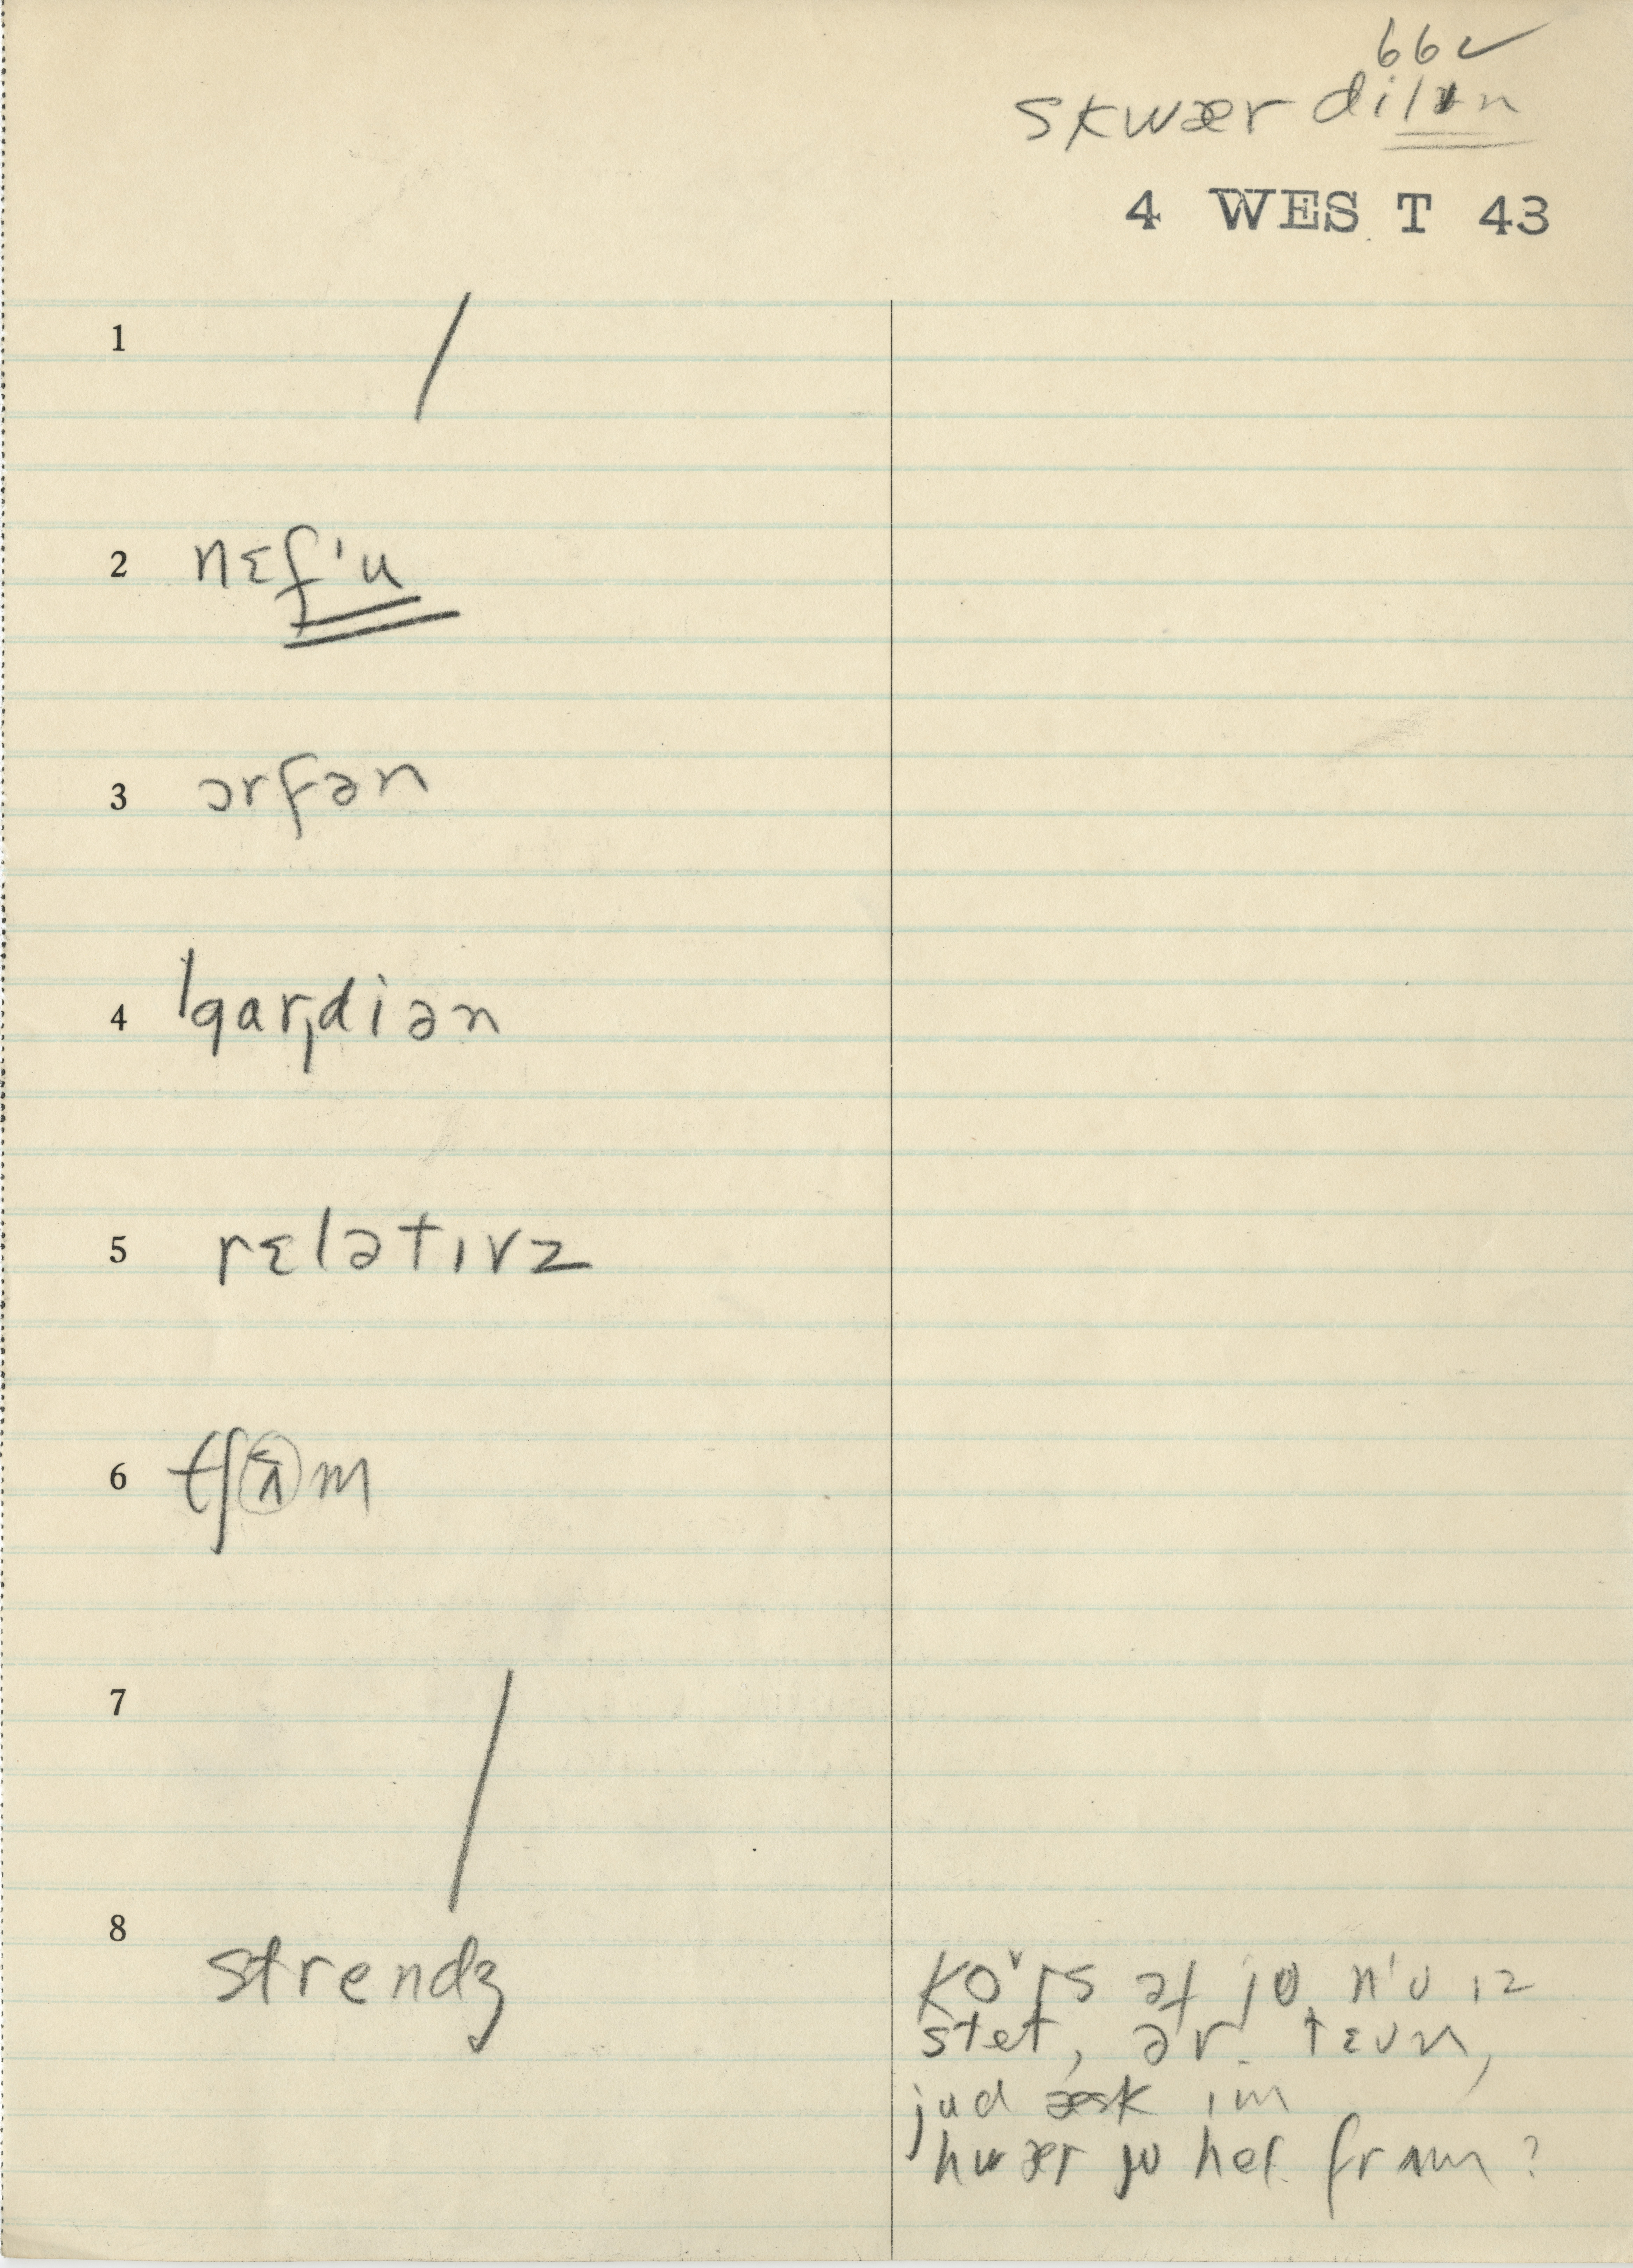 66 ✓
skwær dilən
4 WEST 43
1 /
2 nɛf'u
3 ɔrfən
4 ˈgarˌdiən
5 rɛlətɪvz
6 tʃʌm
7 /
8 strendʒ
ko˅rs əf jʊ nʊ ɪz
stet, ər tɛʊn,
jud æsk ɪm
hwær jʊ hel frʌm?